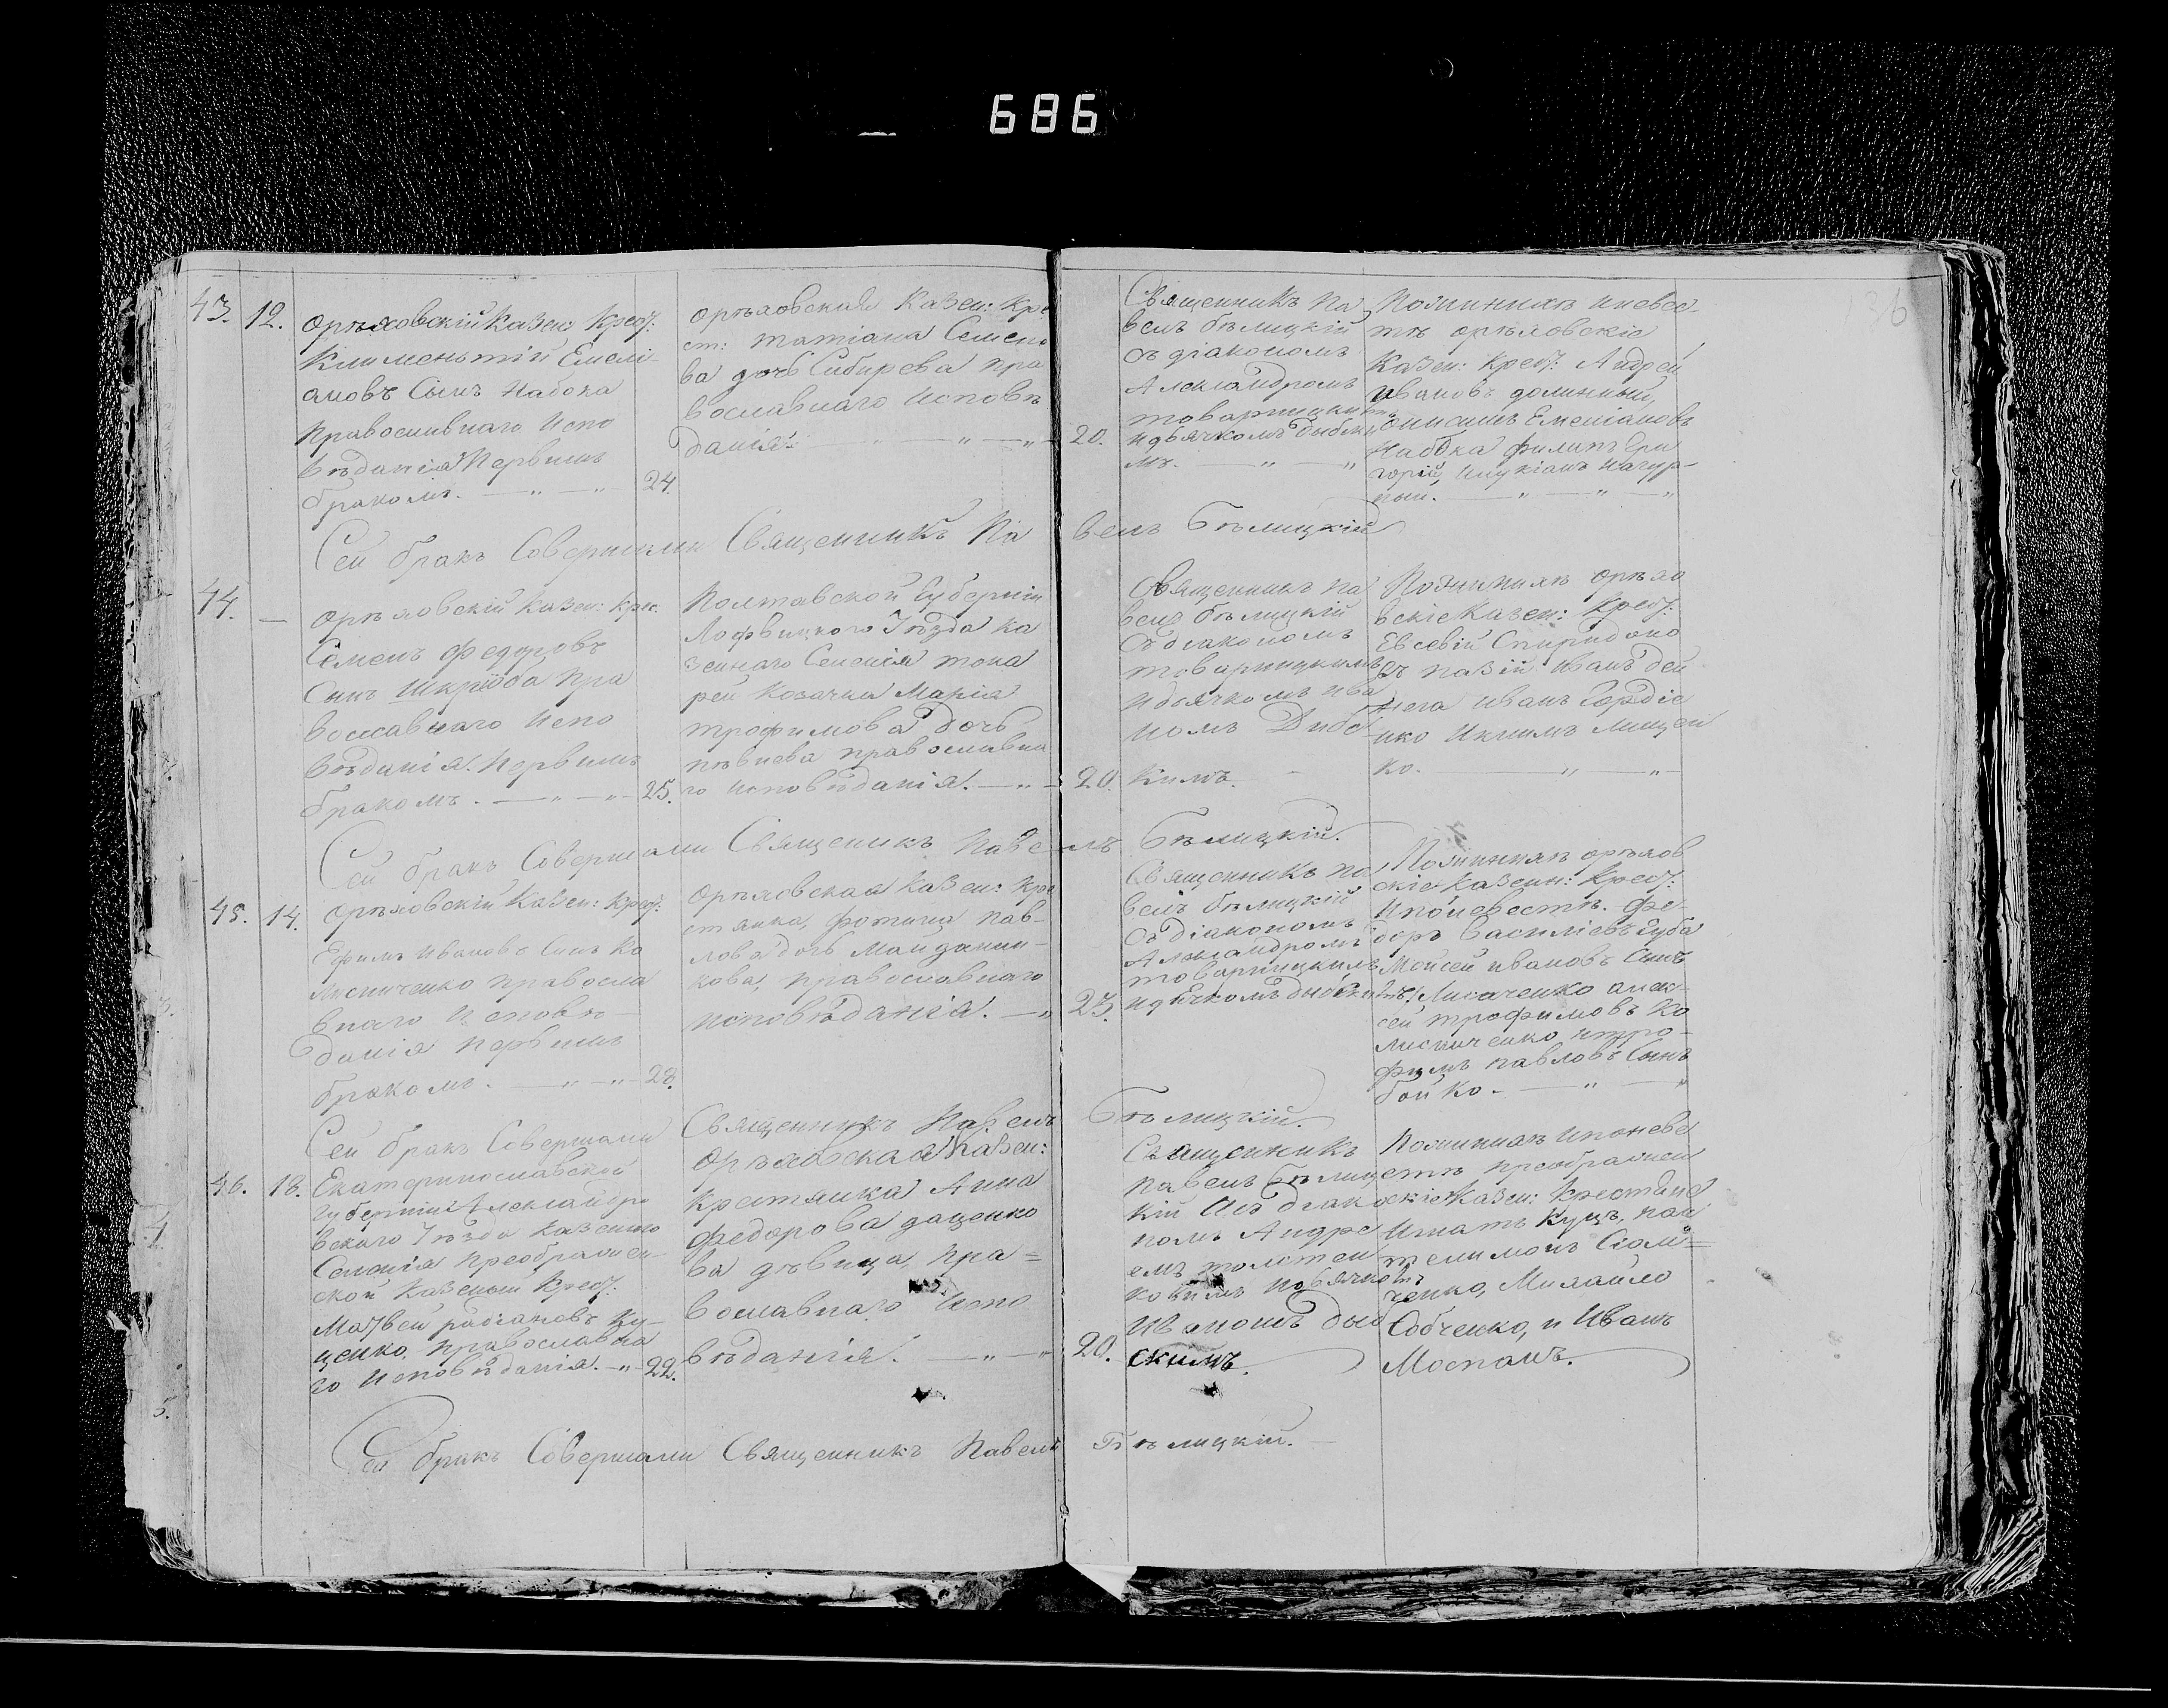 686
36
43. 12.
Орѣховскій Казен: Крест:
Климентій Емелі-
ановъ Сынъ Набока
Православнаго Испо
вѣданія Первымъ
бракомъ. — „ — „ 24.
Орѣховская Казен: Кре
ст: татіана Семено
ва дочь Сибирева пра
вославнаго Исповѣ
данія. — „ — „ — 20.
Священникъ Па
велъ бѣлицкій
съ діакономъ
Александромъ
товарницкимъ
идьячкомъ дыбски
мъ. — „ — „
Пожениха иневес-
тѣ орѣховскіе
Казен: Крест: Андрей
Ивановъ должный,
Емеліановъ
Набока филипъ Гри
горій,
ный. — „ — „ — „
Сей бракъ Совершали Священникъ Павелъ Бѣлицкій
44. —
Орѣховскій Казен: Крес:
Семенъ Федоровъ
Сынъ Шкрыба Пра
вославнаго Испо
вѣданія. Первымъ
бракомъ. — „ — „ — 25.
Полтавской Губерніи
Лофвицкого Уѣзда ка
зеннаго Селенія тока
рей Козачка Марія
трофимова Дочь
пѣвнева православна
го исповѣданія. — „ — 20.
Священникъ Па
велъ бѣлицкій
Съ діакономъ
товарницкимъ
идьячкомъ Ива
номъ Дыбс
кимъ.
Пожениха орѣхо
вскіе Казен: Крест:
Евсевій Спиридоно
въ Иванъ Дей
нега Иванъ Гордіе
нко Лищен
ко. — „ — „ —
Сей бракъ Совершали Священикъ Павелъ Бѣлицкій.
45. 14.
Орѣховскій Казен: Крест:
Ефимъ Ивановъ Сынъ Ко
лисниченко правосла
внаго Исповѣ-
данія первымъ
бракомъ. — „ — „ — 28.
Орѣховская Казен: Кре
стянка, Фотина Пав-
лова дочь Майданни-
кова, православнаго
исповѣданія. — „ 23.
Священникъ Па
велъ бѣлицкій
Съ діакономъ
Александромъ
товарницкимъ
идьячкомъ дыбскимъ.
Пожениха орѣхов
скіе Казенн: Крест:
Ипоневестѣ. Фе-
доръ Василіевъ Губа
Мойсей ивановъ Сынъ
Лисаченко алек-
сей трофимовъ Ко
лисниченко итро-
фимъ павловъ Сынъ
бойко. — „ — „
Сей бракъ Совершали Священникъ Павелъ Бѣлицкій.
46. 18.
Екатеринославской
Губерніи Александро
вскаго Уѣзда Казенно
Селенія Преображен-
ской Казеный Крест:
Матвей Ку-
ценко, православна
го Исповѣданія. — „ 22.
Орѣховская Казен:
Крестянка Анна
Федорова даценко
ва дѣвица, пра=
вославнаго Испо
вѣданія. — „ — „ 20.
Священникъ
Павелъ Бѣлиц
кій Исъ діако
номъ Андре
емъ
ковымъ идьячкомъ
Иваномъ дыб
скимъ.
Пожениха ипоневе
стѣ преображен
скіе Казен: Крестяне
Игнатъ Куцъ, пан
телимонъ
ченко, Михайло
Собченко, и Иванъ
Моспанъ.
Сей бракъ Совершали Священникъ Павелъ Бѣлицкій. —